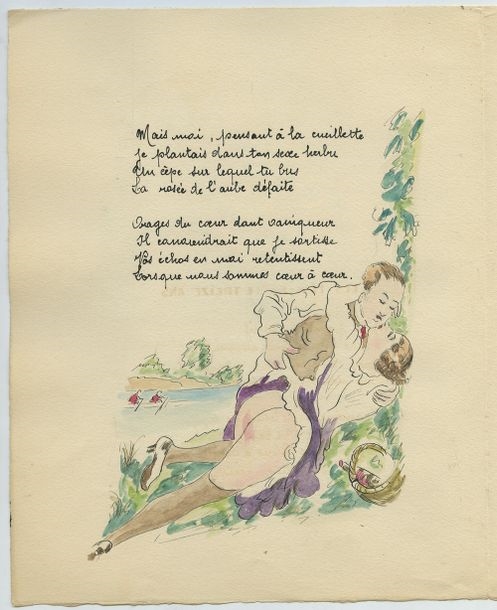 Mais moi, pensant à la cueillette
Je plantais dans ton sexe herbu
Un cèpe sur lequel tu bus
La rosée de l'aube défaite
Orages du cœur dont vainqueur
Il conviendrait que je sortisse
Vos échos en moi retentissent
Lorsque nous sommes cœur à cœur.